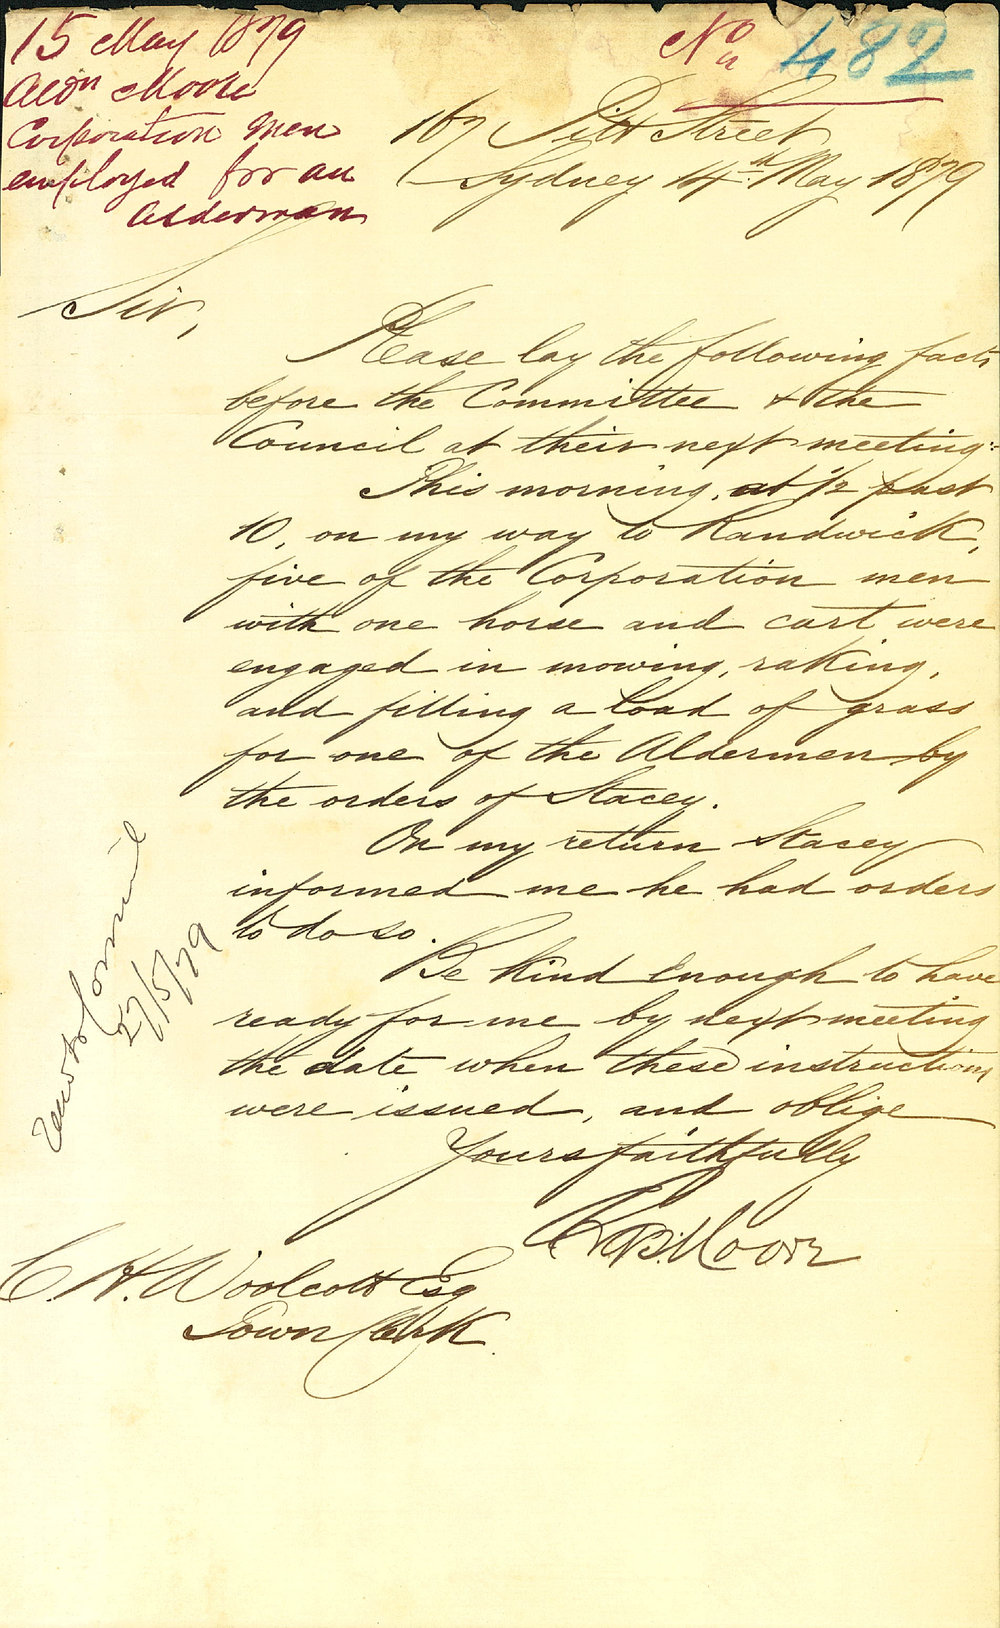 15 May 1879
Aldn Moore
Corporation Men
employed for an
Alderman
No 482
167 Pitt Street
Sydney 14th May 1879
Sir,
Please lay the following facts
before the Committee & the
Council at their next meeting:-
This morning, at 1/2 past
10, on my way to Randwick,
five of the Corporation men
with one horse and cart were
engaged in mowing, raking,
and filling a load of grass
for one of the Aldermen by
the orders of Stacey.
On my return Stacey
informed me he had orders
to do so.
Be kind enough to have
ready for me by next meeting
the date when these instructions
were issued, and oblige
Yours faithfully
C. Moore
C. H. Woolcott Esq
Town Clerk.
to Council
27/5/79